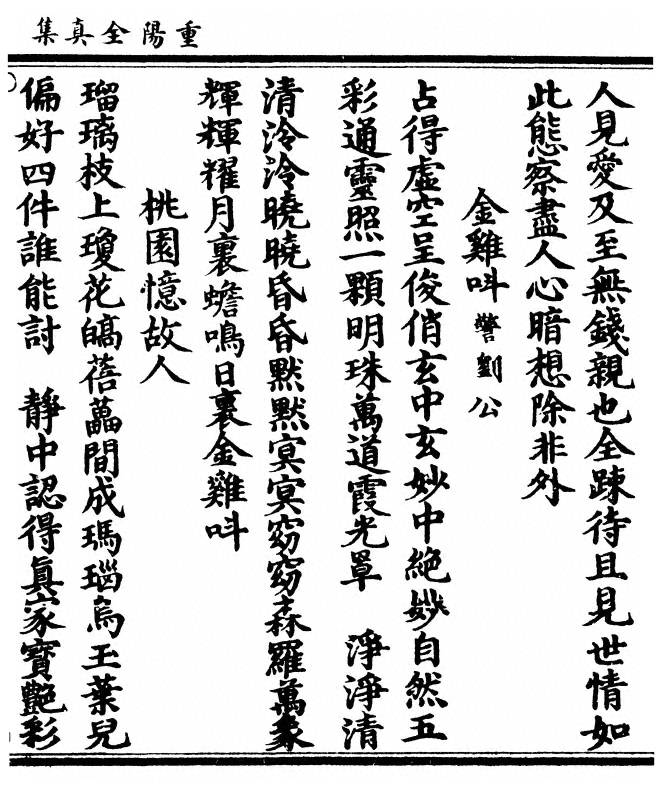 重陽全真集
人見愛及至無錢親也全踈待且見世情如
此態察盡人心暗想除非外
金雞叫 警劉公
占得虛空呈俊俏玄中玄妙中絶妙自然五
彩通靈照一顆明珠萬道霞光罩 淨淨清
清泠泠曉曉昏昏默默冥冥窈窈森羅萬象
輝輝耀月裏蟾鳴日裏金雞叫
桃園憶故人
瑠璃枝上瓊花皜蓓蕌間成瑪瑙烏玉葉兒
偏好四件誰能討 靜中認得真家寶艶彩